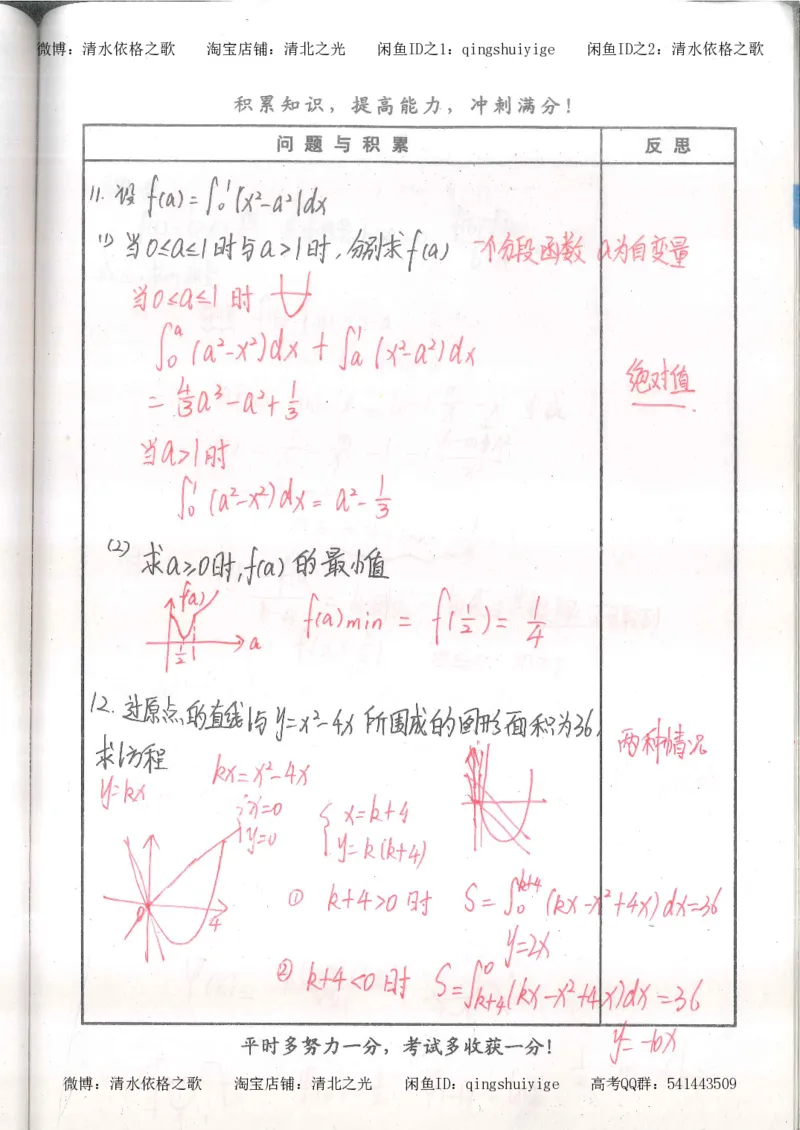 微博：清水依格之歌 淘宝店铺：清北之光 闲鱼ID之1：qingshuiyige 闲鱼ID之2：清水依格之歌
积累知识，提高能力，冲刺满分！
问题与积累 反思
11. 设 f(a)=∫₀¹|x²-a²|dx
(1) 当0≤a≤1时与a>1时，分别求f(a) 一个分段函数 a为自变量
当0≤a≤1时
∫₀ᵃ(a²-x²)dx+∫ₐ¹(x²-a²)dx
绝对值
=4/3a³-a²+1/3
当a>1时
∫₀¹(a²-x²)dx=a²-1/3
(2) 求a≥0时，f(a)的最小值
f(a)
1/2 1 a
f(a)min = f(1/2) = 1/4
12. 过原点的直线l与y=x²-4x所围成的图形面积为36，
两种情况
求l方程
y=kx
kx=x²-4x
x=0
y=0
x=k+4
y=k(k+4)
0 4
① k+4>0时 S=∫₀^(k+4)(kx-x²+4x)dx=36
y=2x
② k+4<0时 S=∫_(k+4)^0(kx-x²+4x)dx=36
y=-6x
平时多努力一分，考试多收获一分！
微博：清水依格之歌 淘宝店铺：清北之光 闲鱼ID：qingshuiyige 高考QQ群：541443509